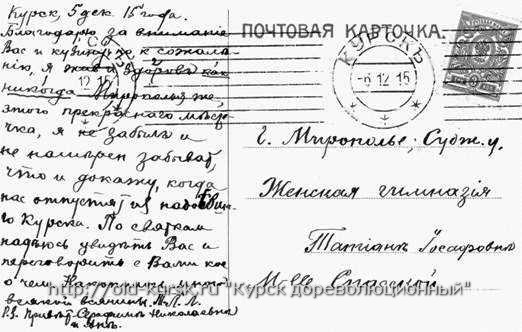 Курск, 5 дек. 15 года.
Благодарю за внимание
Вас и кузину, но, к сожале-
нію, я жив и здоров как
никогда. Мирополья же,
этого прекраснаго мѣсте-
чка, я не забыл и
не намѣрен забывать,
что и докажу, когда
нас отпустят из
го Курска. По святкам
надѣюсь увидѣть Вас и
переговорить с Вами кое
о чем.
всякой всячины. М. Л. Л.
P.S. Привѣт Серафимѣ Николаевнѣ
и
ПОЧТОВАЯ КАРТОЧКА.
КУРСКЪ
6 12 15
12 15
г. Мирополье, Судж. у.
Женская гимназія
Татіанѣ Іосафовнѣ
M-lle Спасской
http://old-kursk.ru "Курск дореволюционный"